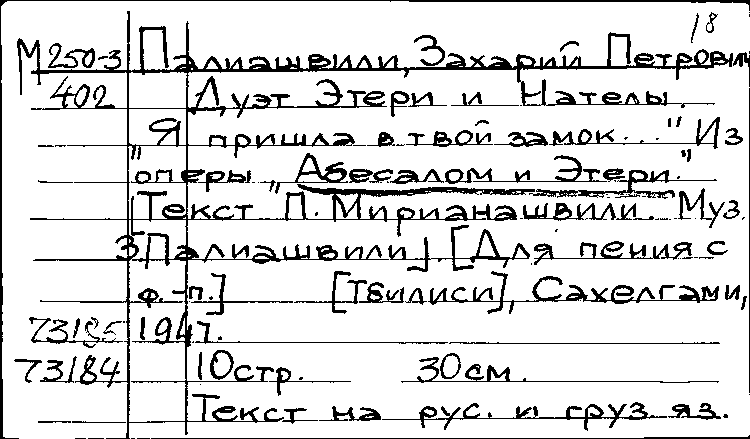 18
М250-3 Палиашвили, Захарий Петрович
402 Дуэт Этери и Нателы.
„Я пришла в твой замок..." Из
оперы „Абесалом и Этери."
[Текст П. Мирианашвили. Муз.
З. Палиашвили]. [Для пения с
ф.-п.] [Тбилиси], Сахелгами,
73185 1947.
73184 10стр. 30см.
Текст на рус. и груз. яз.